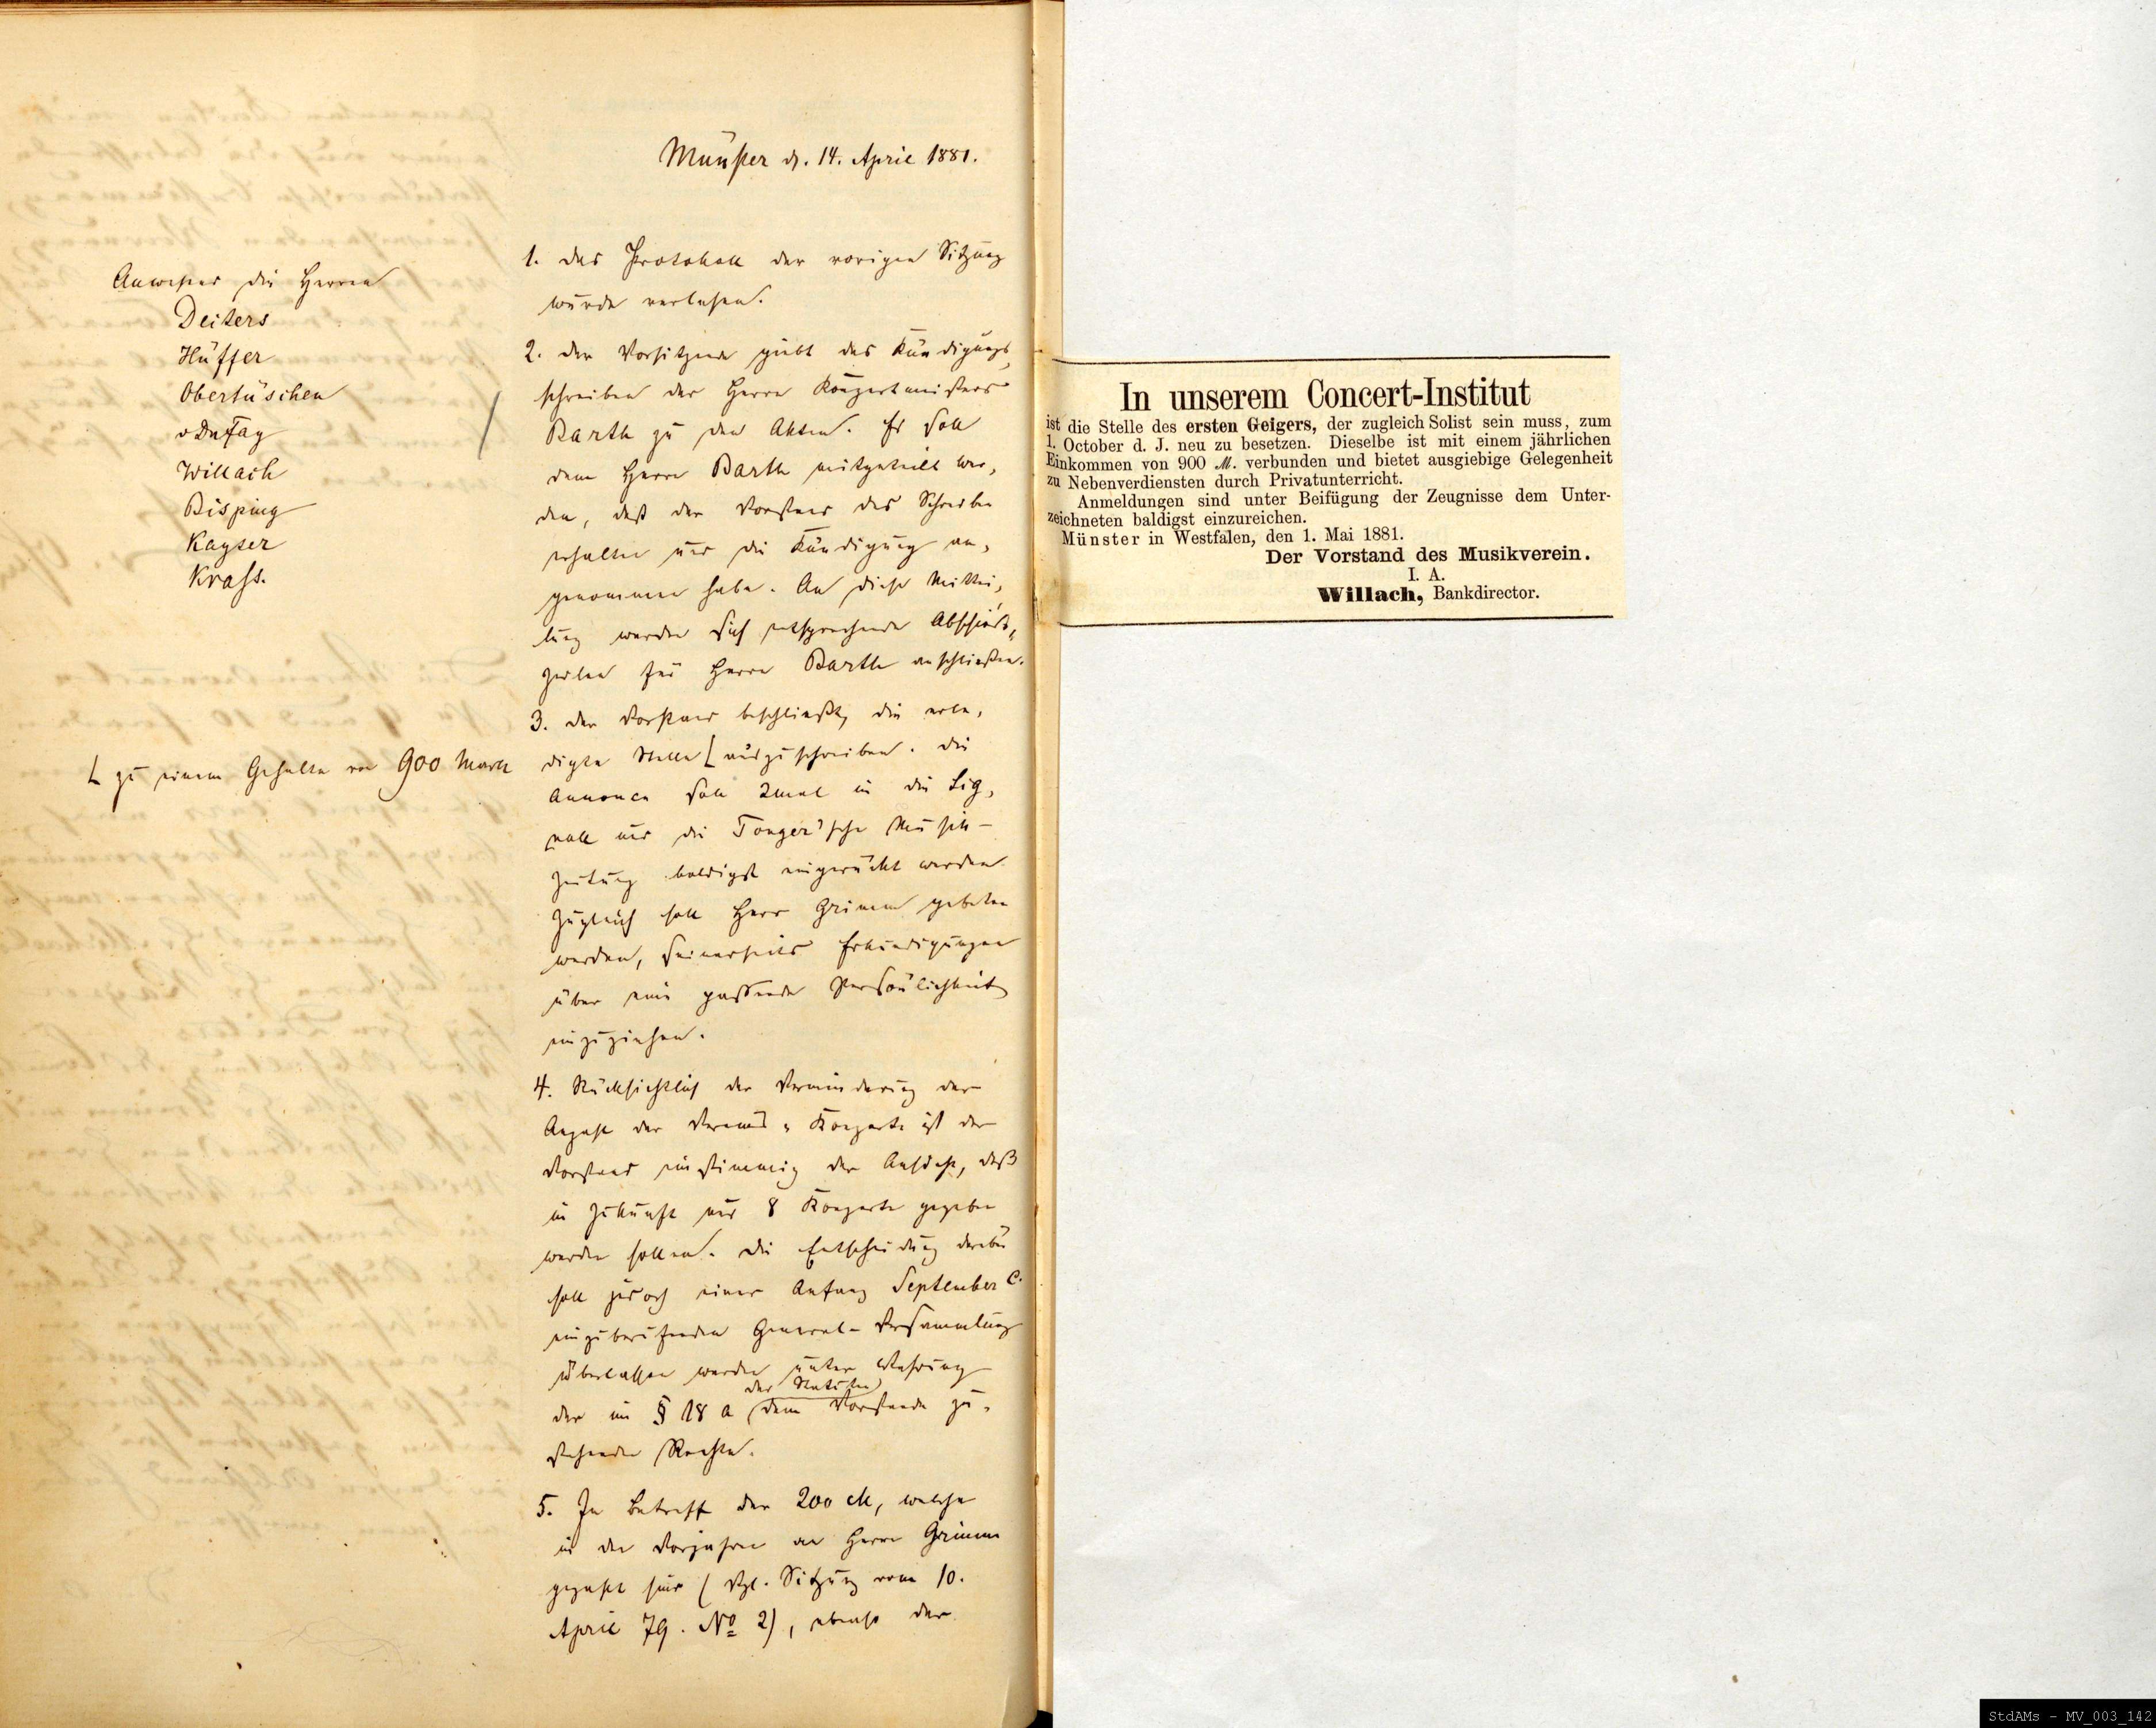 Münster d. 14. April 1881.
Anwesend die Herren
Deiters
Hüffer
Obertüschen
v Du Fay
Willach
Bisping
Kayser
Krass.
1. Das Protokoll der vorigen Sitzung
wurde verlesen.
2. Der Vorsitzende giebt das Kündigungs-
schreiben des Herrn Konzertmeisters
Barth zu den Akten. Es soll
dem Herrn Barth mitgeteilt wer-
den, daß der Vorstand das Schreiben
erhalten und die Kündigung an-
genommen habe. An diese Mittei-
lung werden sich entsprechende Abschieds-
zeilen für Herrn Barth anschließen.
3. Der Vorstand beschließt, die erle-
digte Stelle ⌊ auszuschreiben. Die
⌊ zu einem Gehalte von 900 Mark
Annonce soll 2mal in die Sig-
nale und die Tonger'sche Musik-
zeitung baldigst eingerückt werden
Zugleich soll Herr Grimm gebeten
werden, seinerseits Erkundigungen
über eine passende Persönlichkeit
einzuziehen.
4. Rücksichtlich der Verminderung der
Anzahl der Vereins-Konzerte ist der
Vorstand einstimmig der Ansicht, daß
in Zukunft nur 8 Konzerte gegeben
werden sollen. Die Entscheidung darüber
soll jedoch einer Anfang September c.
einzuberufenden General-Versammlung
überlassen werden unter Wahrung
der im § 18 a der Statuten dem Vorstande zu-
stehenden Rechte.
5. In Betreff der 200 M, welche
in den Vorjahren an Herrn Grimm
gezahlt sind (Vgl. Sitzung vom 10.
April 79. No 2), ebenso der
In unserem Concert-Institut
ist die Stelle des ersten Geigers, der zugleich Solist sein muss, zum
1. October d. J. neu zu besetzen. Dieselbe ist mit einem jährlichen
Einkommen von 900 M. verbunden und bietet ausgiebige Gelegenheit
zu Nebenverdiensten durch Privatunterricht.
Anmeldungen sind unter Beifügung der Zeugnisse dem Unter-
zeichneten baldigst einzureichen.
Münster in Westfalen, den 1. Mai 1881.
Der Vorstand des Musikverein.
I. A.
Willach, Bankdirector.
StdAMs - MV_003_142